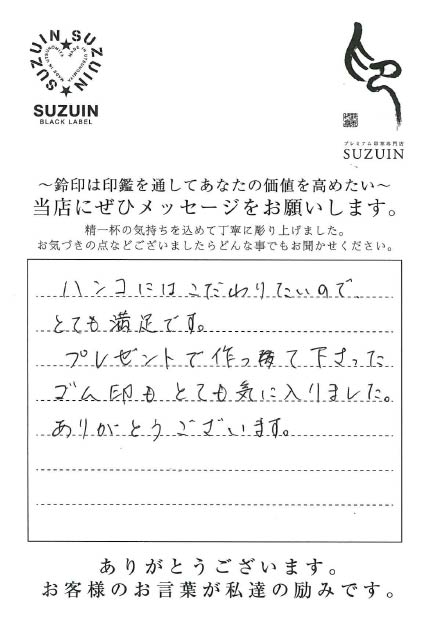 SUZUIN★SUZUIN★
MADE IN UTSUNOMIYA
SUZUIN
BLACK LABEL
プレミアム印章専門店
SUZUIN
〜鈴印は印鑑を通してあなたの価値を高めたい〜
当店にぜひメッセージをお願いします。
精一杯の気持ちを込めて丁寧に彫り上げました。
お気づきの点などございましたらどんな事でもお聞かせください。
ハンコにはこだわりたいので、
とても満足です。
プレゼントで作って下さった
ゴム印もとても気に入りました。
ありがとうございます。
ありがとうございます。
お客様のお言葉が私達の励みです。